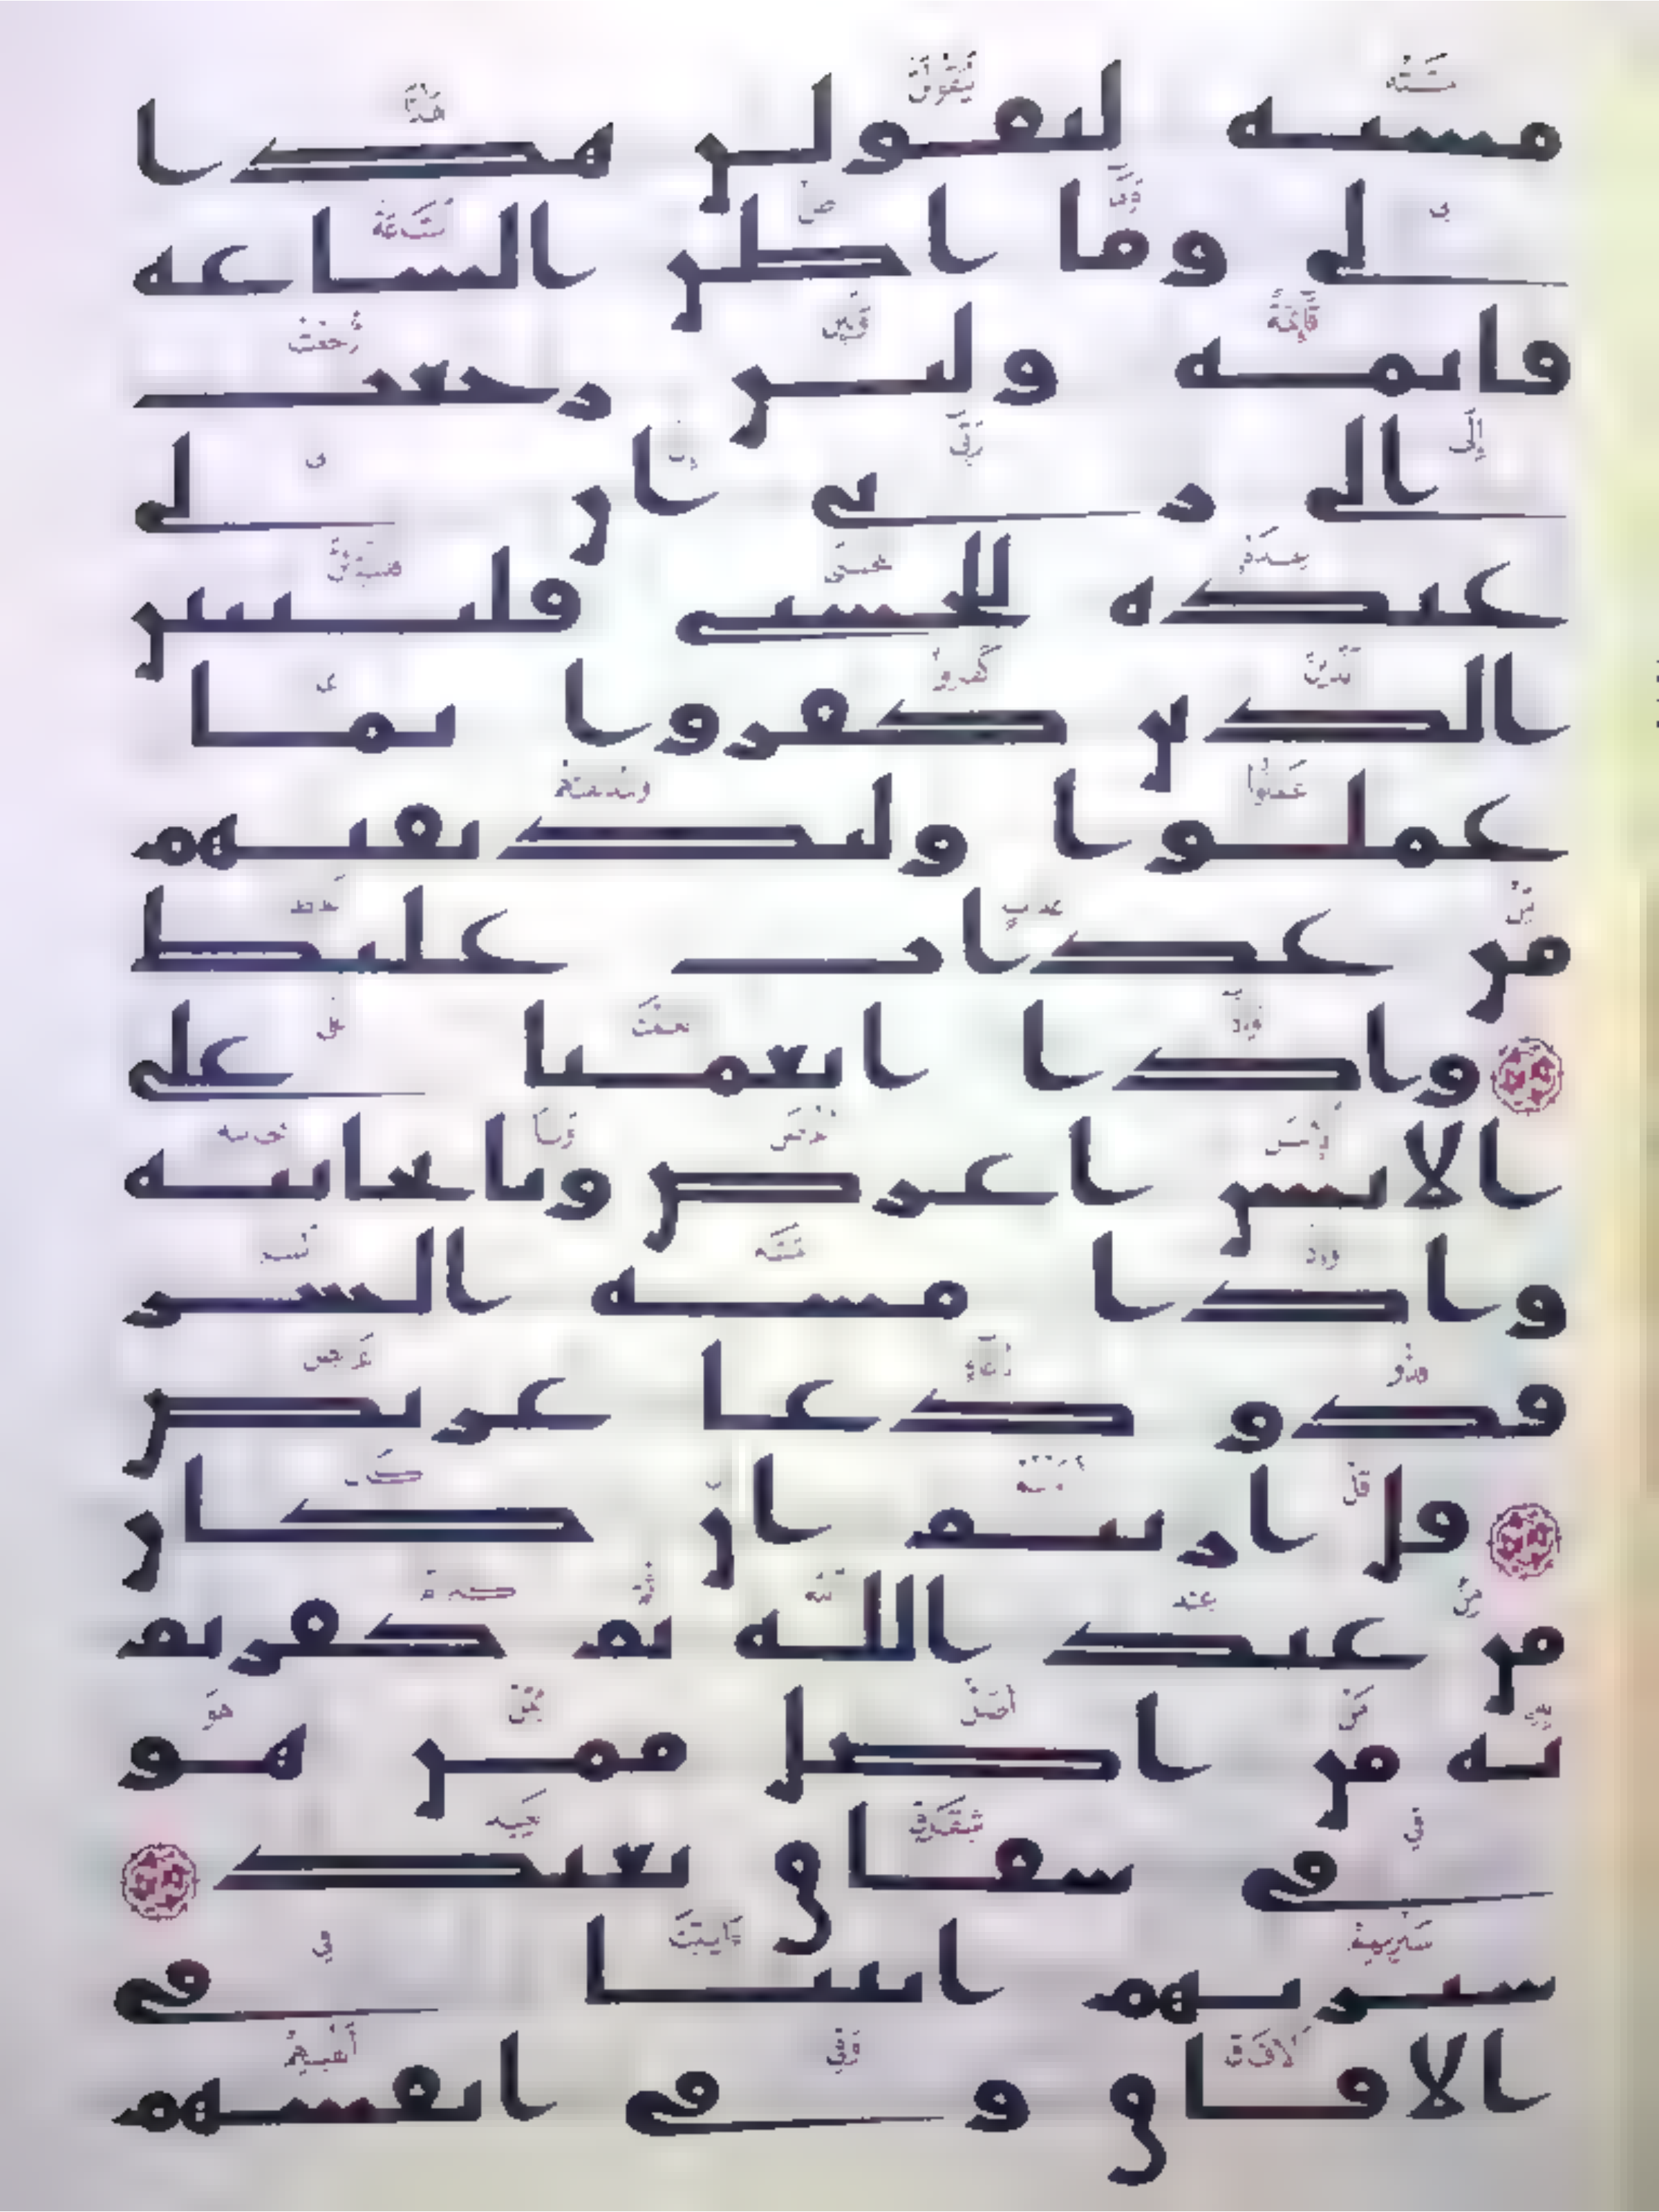 مسته ليقولن هذا
لى وما اظن الساعه
قائمه ولئن رجعت
الى ربى ان لى
عنده للحسنى فلننبئن
الذين كفروا بما
عملوا ولنذيقنهم
من عذاب غليظ
واذا انعمنا على
الانسن اعرض ونا بجانبه
واذا مسه الشر
فذو دعا عريض
قل اريتم ان كان
من عند الله ثم كفرتم
به من اضل ممن هو
فى شقاق بعيد
سنريهم ايتنا فى
الافاق وفى انفسهم